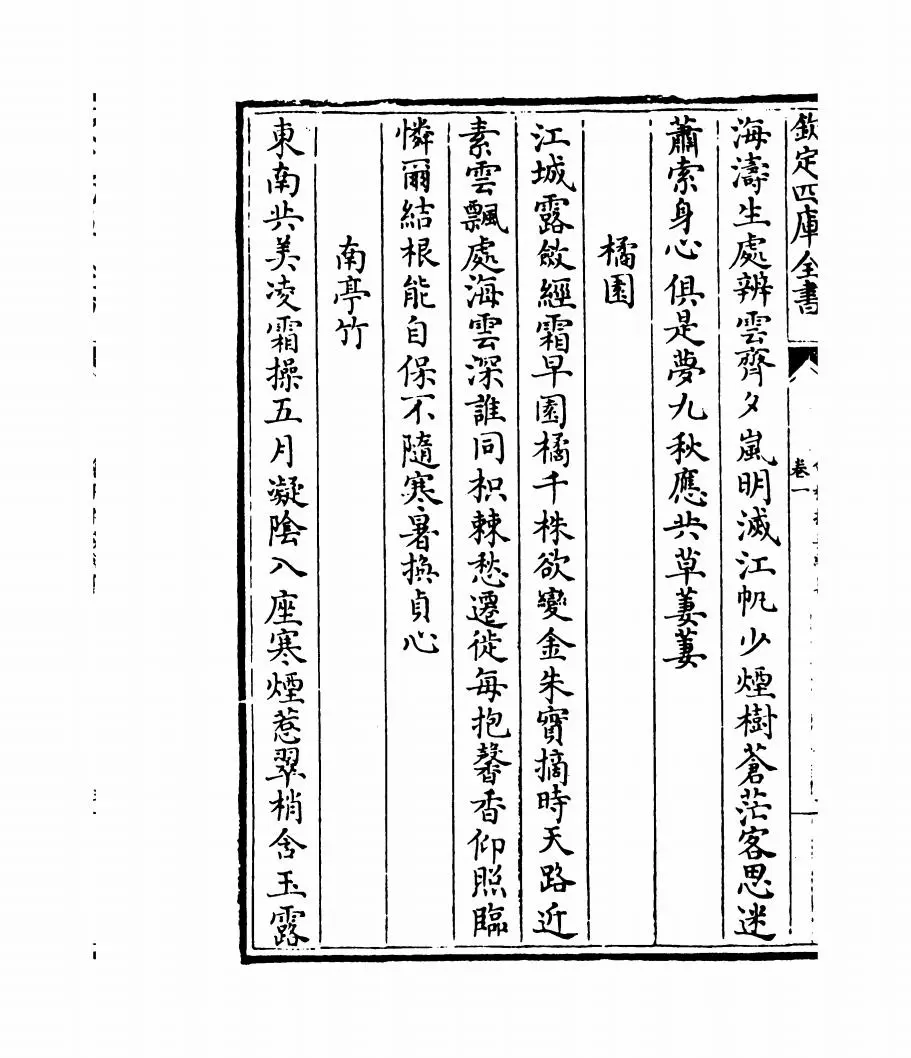 欽定四庫全書
卷一
海濤生處辨雲齊夕嵐明滅江帆少煙樹蒼茫客思迷
蕭索身心俱是夢九秋應共草萋萋
橘園
江城露斂經霜早園橘千株欲變金朱實摘時天路近
素雲飄處海雲深誰同枳棘愁遷徙每抱馨香仰照臨
憐爾結根能自保不隨寒暑換貞心
南亭竹
東南共美凌霜操五月凝陰入座寒煙惹翠梢含玉露